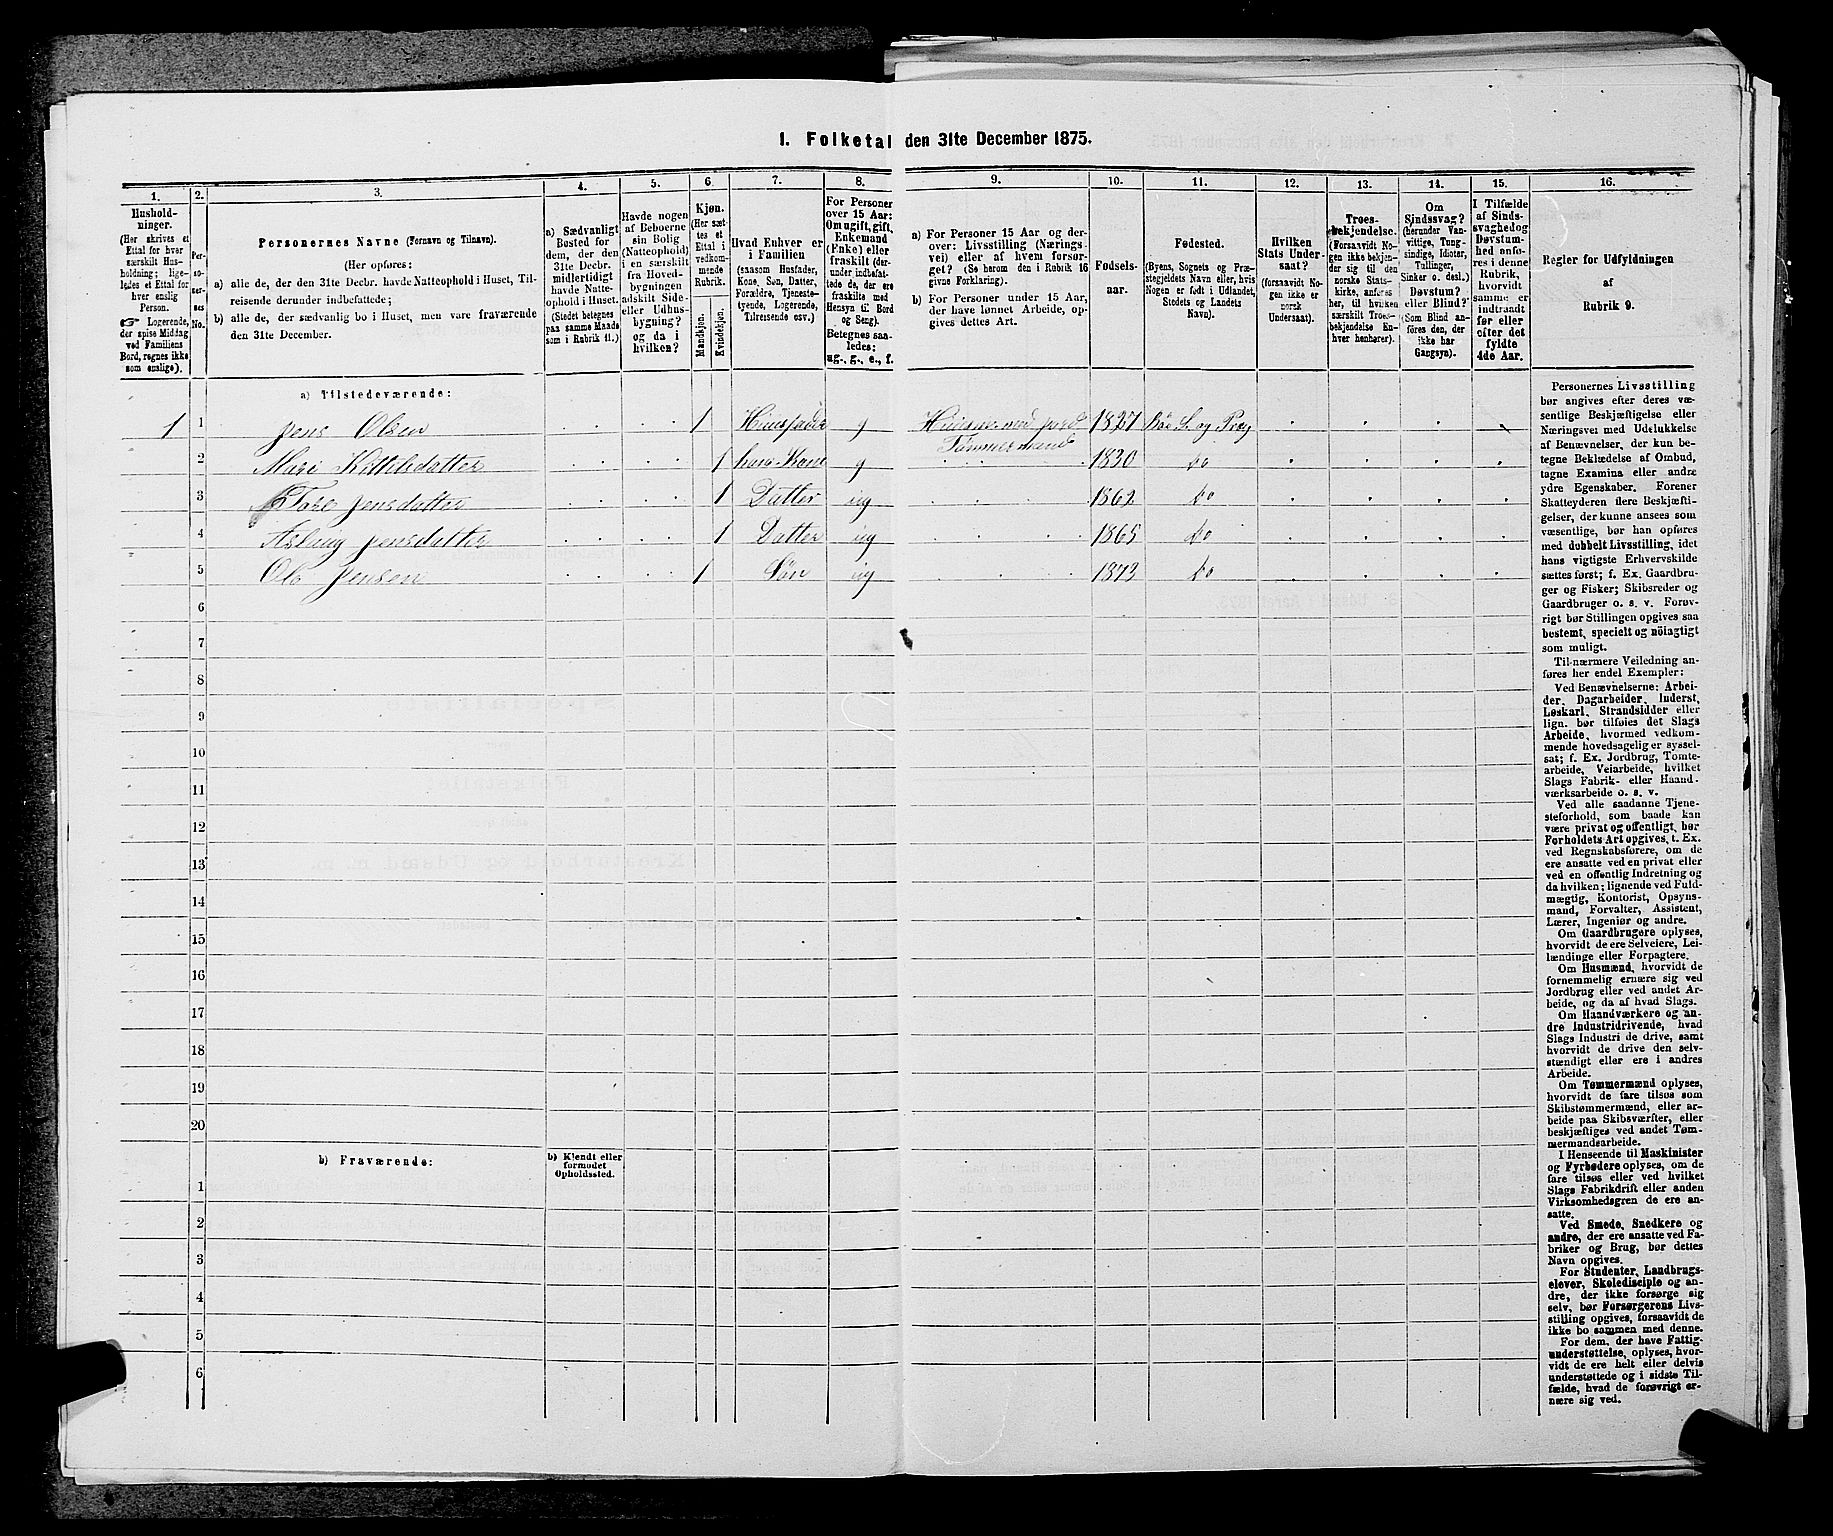 1. Folketal den 31te December 1875.
1.
Hushold-
ninger.
(Her skrives et
Ettal for hver
særskilt Hus-
holdning; lige-
ledes et Ettal for
hver enslig
Person.
☞ Logerende,
der spise Middag
ved Familiens
Bord, regnes ikke
som enslige).
2.
Per-
so-
ner-
nes
No.
3.
Personernes Navne (Fornavn og Tilnavn).
(Her opføres:
a) alle de, der den 31te Decbr. havde Natteophold i Huset, Til-
reisende derunder indbefattede;
b) alle de, der sædvanlig bo i Huset, men vare fraværende
den 31te December.
4.
a) Sædvanligt
Bosted for
dem, der den
31te Decbr.
midlertidigt
havde Natte-
ophold i Huset.
(Stedet betegnes
paa samme Maade
som i Rubrik 11.)
5.
Havde nogen
af Beboerne
sin Bolig
(Natteophold)
i en særskilt
fra Hoved-
bygningen
adskilt Side-
eller Udhus-
bygning?
og da i
hvilken?
6.
Kjøn.
(Her sæt-
tes et
Ettal i
vedkom-
mende
Rubrik.
Mandkjøn.
Kvindekjøn.
7.
Hvad Enhver er
i Familien
(saasom Husfader,
Kone, Søn, Datter,
Forældre, Tjeneste-
tyende, Logerende,
Tilreisende osv.)
8.
For Personer
over 15 Aar:
Om ugift, gift,
Enkemand
(Enke) eller
fraskilt (der-
under indbefat-
tede de, der ere
fraskilte med
Hensyn til Bord
og Seng).
Betegnes saa-
ledes:
ug., g., e., f.
9.
a) For Personer 15 Aar og der-
over: Livsstilling (Nærings-
vei) eller af hvem forsør-
get? (Se herom den i Rubrik 16
givne Forklaring).
b) For Personer under 15 Aar,
der have lønnet Arbeide, op-
gives dettes Art.
10.
Fødsels-
aar.
11.
Fødested.
(Byens, Sognets og Præ-
stegjeldets Navn eller, hvis
Nogen er født i Udlandet,
Stedets og Landets
Navn).
12.
Hvilken
Stats Under-
saat?
(forsaavidt No-
gen ikke er
norsk
Undersaat).
13.
Troes-
bekjendelse.
(Forsaavidt No-
gen ikke bekjen-
der sig til den
norske Stats-
kirke, anføres
her, til hvilken
særskilt Troes-
bekjendelse En-
hver henhører).
14.
Om
Sindssvag?
(herunder Van-
vittige, Tung-
sindige, Idioter,
Tullinger,
Sinker o. desl.)
Døvstum?
eller Blind?
(Som Blind an-
føres den, der
ikke har
Gangsyn).
15.
I Tilfælde
af Sinds-
svaghed og
Døvstum-
hed anfø-
res i denne
Rubrik,
hvorvidt
samme er
indtraadt
før eller
efter det
fyldte
4de Aar.
16.
Regler for Udfyldningen
af
Rubrik 9.
a) Tilstedeværende:
1 1 Jens Olsen 1 Huusfader g Huusm. med jord 1827 Bøe S. og Præg
Tømmermand
2 Mari Kittilsdatter 1 hans Kone g 1830 do
3 Tore Jensdatter 1 Datter ug 1862 do
4 Aslaug Jensdatter 1 Datter ug 1865 do
5 Ole Jensen 1 Søn ug 1873 do
6
7
8
9
10
11
12
13
14
15
16
17
18
19
20
b) Fraværende:
b) Kjendt eller
formodet
Opholdssted.
1
2
3
4
5
6
Personernes Livsstilling
bør angives efter deres væ-
sentlige Beskjæftigelse eller
Næringsvei med Udelukkelse
af Benævnelser, der kun be-
tegne Beklædelse af Ombud,
tagne Examina eller andre
ydre Egenskaber. Forener
Skatteyderen flere Beskjæfti-
gelser, der kunne ansees som
væsentlige, bør han opføres
med dobbelt Livsstilling, idet
hans vigtigste Erhvervskilde
sættes først; f. Ex. Gaardbru-
ger og Fisker; Skibsreder og
Gaardbruger o. s. v. Forøv-
rigt bør Stillingen opgives saa
bestemt, specielt og nöiagtigt
som muligt.
Til nærmere Veiledning an-
føres her endel Exempler:
Ved Benævnelserne: Arbei-
der, Dagarbeider, Inderst,
Løskarl, Strandsidder eller
lign. bør tilføies det Slags
Arbeide, hvormed vedkom-
mende hovedsagelig er syssel-
sat; f. Ex. Jordbrug, Tomte-
arbeide, Veiarbeide, hvilket
Slags Fabrik- eller Haand-
værksarbeide o. s. v.
Ved alle saadanne Tjene-
steforhold, som baade kan
være privat og offentligt, bør
Forholdets Art opgives, t. Ex.
ved Regnskabsførere, om de
ere ansatte ved en privat eller
ved en offentlig Indretning og
da hvilken; lignende ved Fuld-
mægtig, Kontorist, Opsyns-
mand, Forvalter, Assistent,
Lærer, Ingeniør og andre.
Om Gaardbrugere oplyses,
hvorvidt de ere Selveiere, Lei-
lændinge eller Forpagtere.
Om Husmænd, hvorvidt de
fornemmelig ernære sig ved
Jordbrug eller ved andet Ar-
beide, og da af hvad Slags.
Om Haandværkere og an-
dre Industridrivende, hvad
Slags Industri de drive, samt
hvorvidt de drive den selv-
stændigt eller ere i andres
Arbeide.
Om Tømmermænd oplyses,
hvorvidt de fare tilsøs som
Skibstømmermænd, eller ar-
beide paa Skibsværfter, eller
beskjæftiges ved andet Tøm-
mermandsarbeide.
I Henseende til Maskinister
og Fyrbødere oplyses, om de
fare tilsøs eller ved hvilket
Slags Fabrikdrift eller anden
Virksomhedsgren de ere an-
satte.
Ved Smede, Snedkere og
andre, der ere ansatte ved Fa-
briker og Brug, bør dettes
Navn opgives.
For Studenter, Landbrugs-
elever, Skoledisciple og an-
dre, der ikke forsørge sig
selv, bør Forsørgerens Livs-
stilling opgives, forsaavidt de
ikke bo sammen med denne.
For dem, der have Fattig-
understøttelse, oplyses, hvor-
vidt de ere helt eller delvis
understøttede og i sidste Til-
fælde, hvad de forøvrigt er-
nære sig ved.